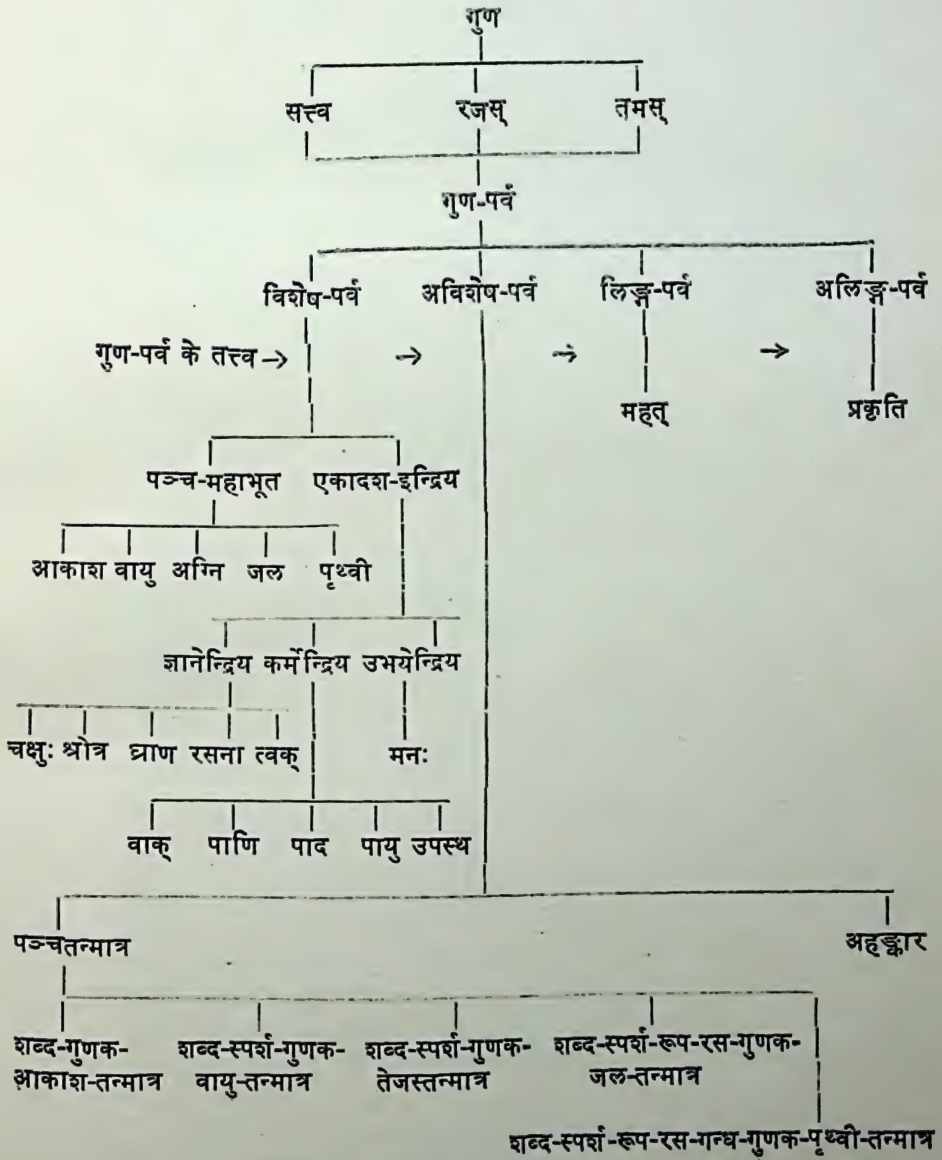 गुण
सत्त्व रजस् तमस्
गुण-पर्व
विशेष-पर्व अविशेष-पर्व लिङ्ग-पर्व अलिङ्ग-पर्व
गुण-पर्व के तत्त्व → → → →
महत् प्रकृति
पञ्च-महाभूत एकादश-इन्द्रिय
आकाश वायु अग्नि जल पृथ्वी
ज्ञानेन्द्रिय कर्मेन्द्रिय उभयेन्द्रिय
चक्षुः श्रोत्र घ्राण रसना त्वक् मनः
वाक् पाणि पाद पायु उपस्थ
पञ्चतन्मात्र अहङ्कार
शब्द-गुणक- शब्द-स्पर्श-गुणक- शब्द-स्पर्श-गुणक- शब्द-स्पर्श-रूप-रस-गुणक-
आकाश-तन्मात्र वायु-तन्मात्र तेजस्तन्मात्र जल-तन्मात्र
शब्द-स्पर्श-रूप-रस-गन्ध-गुणक-पृथ्वी-तन्मात्र